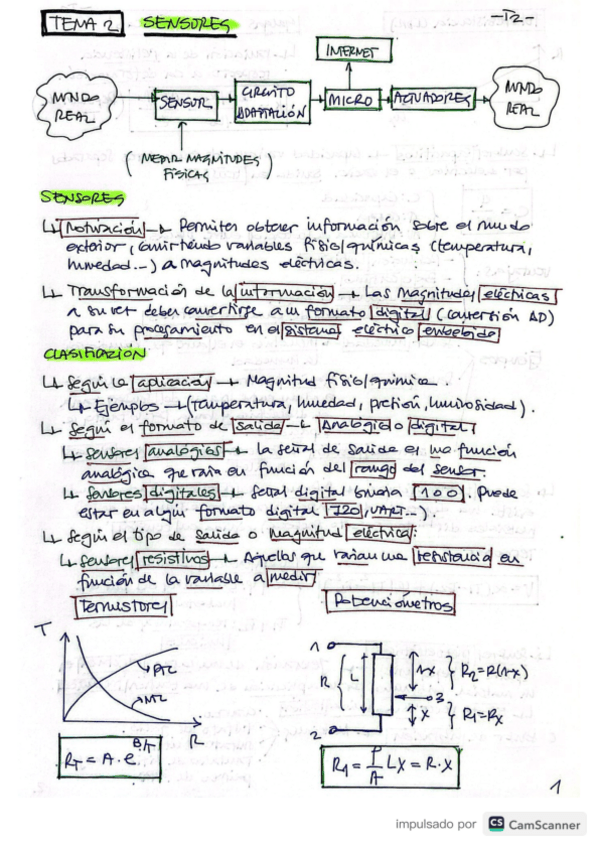 TEMA 2 SENSORES
-T2-
INTERNET
MUNDO REAL
SENSOR
CIRCUITO ADAPTACIÓN
MICRO
ACTUADORES
MUNDO REAL
(MEDIR MAGNITUDES FÍSICAS)
SENSORES
↳ Motivación → Permiten obtener información sobre el mundo
exterior, convirtiendo variables físio/químicas (temperatura,
humedad...) a magnitudes eléctricas.
↳ Transformación de la información → Las magnitudes eléctricas
a su vez deben convertirse a un formato digital (conversión AD)
para su procesamiento en el sistema eléctrico embebido
CLASIFICACIÓN
↳ Según la aplicación → Magnitud físio/química.
↳ Ejemplos → (temperatura, humedad, presión, luminosidad).
↳ Según el formato de salida → Analógico o digital.
↳ Sensores analógicos → la señal de salida es una función
analógica que varía en función del rango del sensor.
↳ Sensores digitales → Señal digital binaria 100. Puede
estar en algún formato digital I2C, UART...
↳ Según el tipo de salida o magnitud eléctrica:
↳ Sensores resistivos → Aquellos que varían una resistencia en
función de la variable a medir
Termistores
Potenciómetros
T
PTC
NTC
R
R_T = A · e^B/T
1
R
L
1-x
R₂=R(1-x)
3
x
R₁=Rx
2
R₁ = ρ/A Lx = R·x
1
impulsado por CS CamScanner